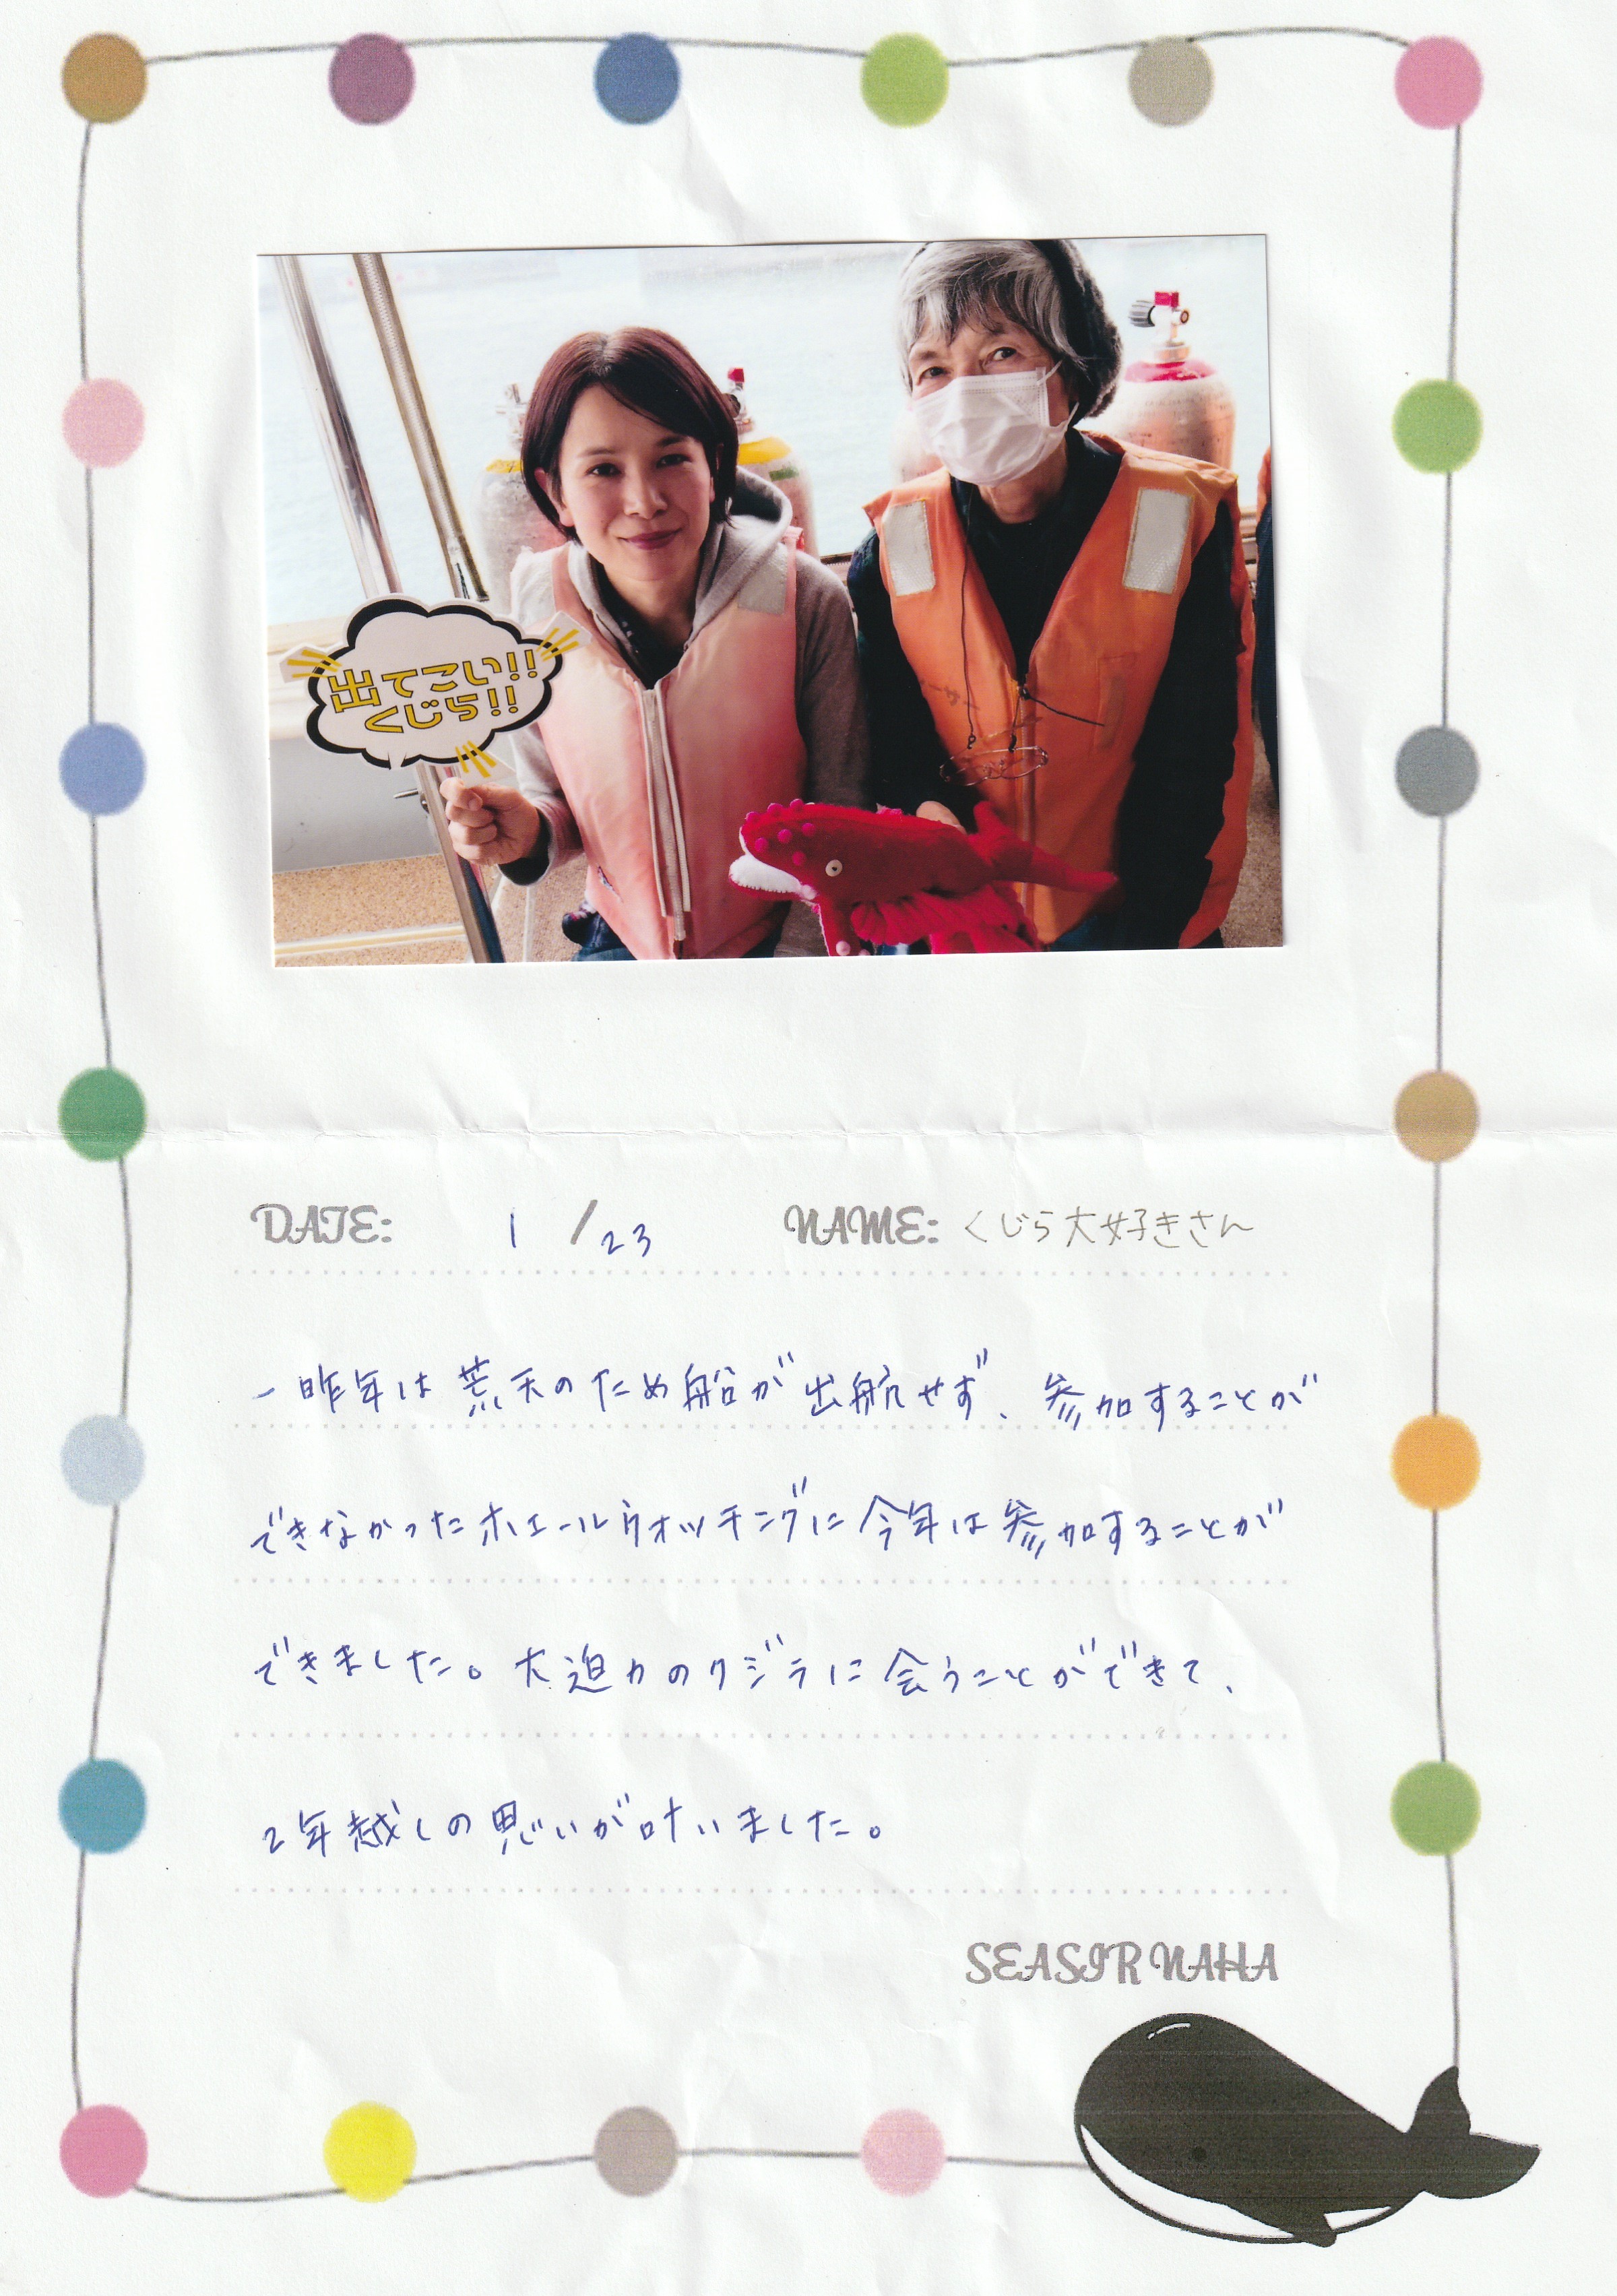 出てこい!!
くじら!!
DATE: 1/23 NAME: くじら大好きさん
一昨年は荒天のため船が出航せず、参加することが
できなかったホエールウォッチングに今年は参加することが
できました。大迫力のクジラに会うことができて、
2年越しの思いが叶いました。
SEASIR NAHA